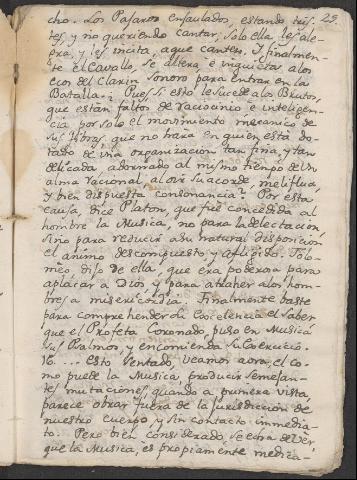 29.
cho. Los Pajaros enjaulados, estando tris-
tes, y no queriendo cantar, solo ella les ale-
gra, y les incita, a que canten. Y finalmen-
te el Cavallo, se altera e inquieta a los
ecos del Clarin Sonoro para entrar en la
Batalla. Pues si esto le sucede a los Brutos,
que estan faltos de raciocinio e inteligen-
cia por solo el movimiento mecanico de
sus fibras, que no hara en quien està do-
tado de una organizacion tan fina, y tan
delicada, adornado al mismo tiempo de un
alma racional, al oir su acorde, meliflua,
y bien dispuesta consonancia? Por esta
causa, dice Platon, que fuè concedida al
hombre la Musica, no para la delectacion
sino para reducir a su natural disposicion
el animo descompuesto y afligido. Tolo-
mèo, dijo de ella, que era poderosa para
aplacar a Dios y para atraher a los hom-
bres a misericordia. Finalmente baste
para comprehender su Excelencia el saber
que el Profeta Coronado, puso en Musica
sus Psalmos, y encomienda su exercicio.
Esto sentado, veamos aora, el co-
mo puede la Musica, producir semejan-
tes mutaciones, quando a primera vista,
parece obrar fuera de la jurisdiccion de
nuestro cuerpo, y sin contacto immedia-
to. Pero bien considerado, se echa de ver,
que la Musica, es propiamente medica-